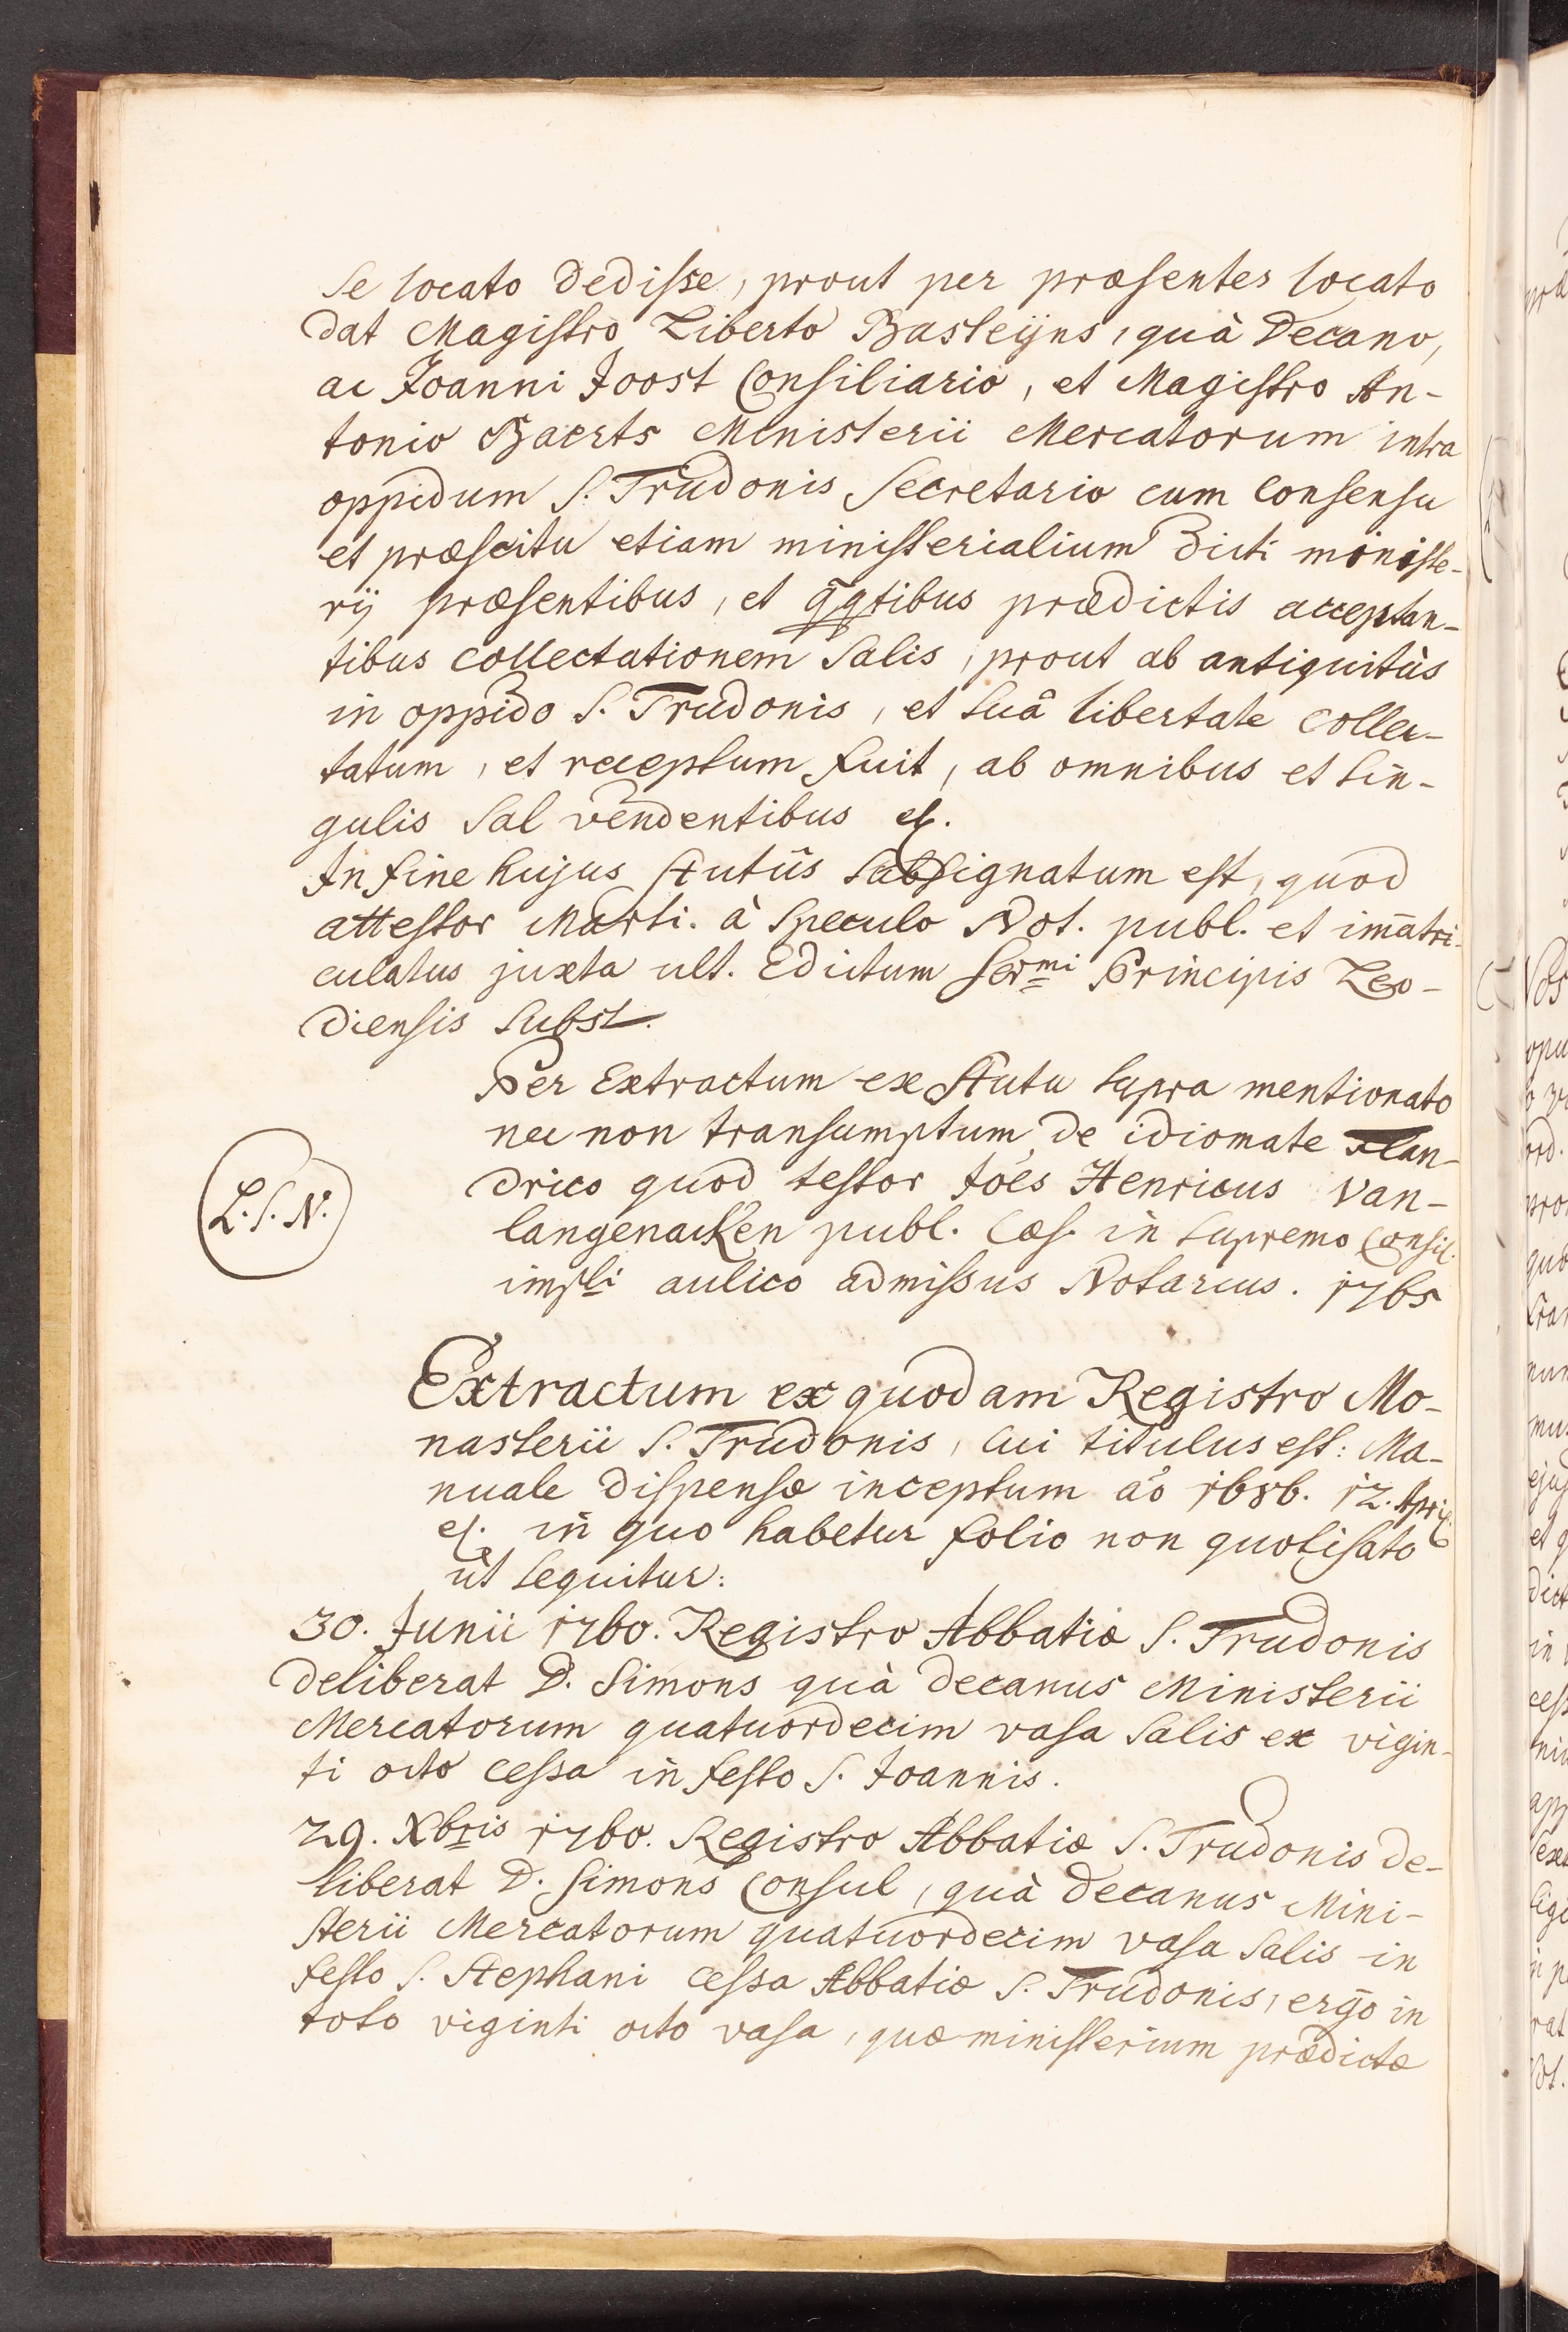 se locato dedisse, prout per præsentes locato
dat Magistro Liberto Basteijns, quà Decano,
ac Joanni Joost Consiliario, et Magistro An-
tonio Baerts Ministerii Mercatorum intra
oppidum S. Trudonis Secretario cum consensu
et præscitu etiam ministerialium dicti ministe-
rij præsentibus, et q̄q̄tibus prædictis acceptan-
tibus collectationem salis, prout ab antiquitùs
in oppido S. Trudonis, et suâ libertate collec-
tatum, et receptum fuit, ab omnibus et sin-
gulis sal vendentibus etc.
In fine hujus stutûs subsignatum est, quod
attestor Marti. à Speculo Not. publ. et im̄atri-
culatus juxta ult. Edictum Sermi Principis Leo-
diensis subst.
Per Extractum ex stutu supra mentionato
nec non transumptum de idiomate Flan-
drico quod testor Joes Henricus Van-
langenacken publ. Cæs. in supremo Consil.
impli aulico admissus Notarius. 1765
L.S.N.
Extractum ex quodam Registro Mo-
nasterii S. Trudonis, cui titulus est: Ma-
nuale dispensæ inceptum aō 1686. 12. April
etc. in quo habetur folio non quotisato
ut sequitur:
30. Junii 1760. Registro Abbatiæ S. Trudonis
deliberat D. Simons quà decanus Ministerii
Mercatorum quatuordecim vasa salis ex vigin-
ti octo cessa in festo S. Joannis.
29. Xbris 1760. Registro Abbatiæ S. Trudonis de-
liberat D. Simons Consul, quà decanus Mini-
sterii Mercatorum quatuordecim vasa salis in
festo S. Stephani cessa Abbatiæ S. Trudonis, ergo in
toto viginti octo vasa, quæ ministerium prædictæ